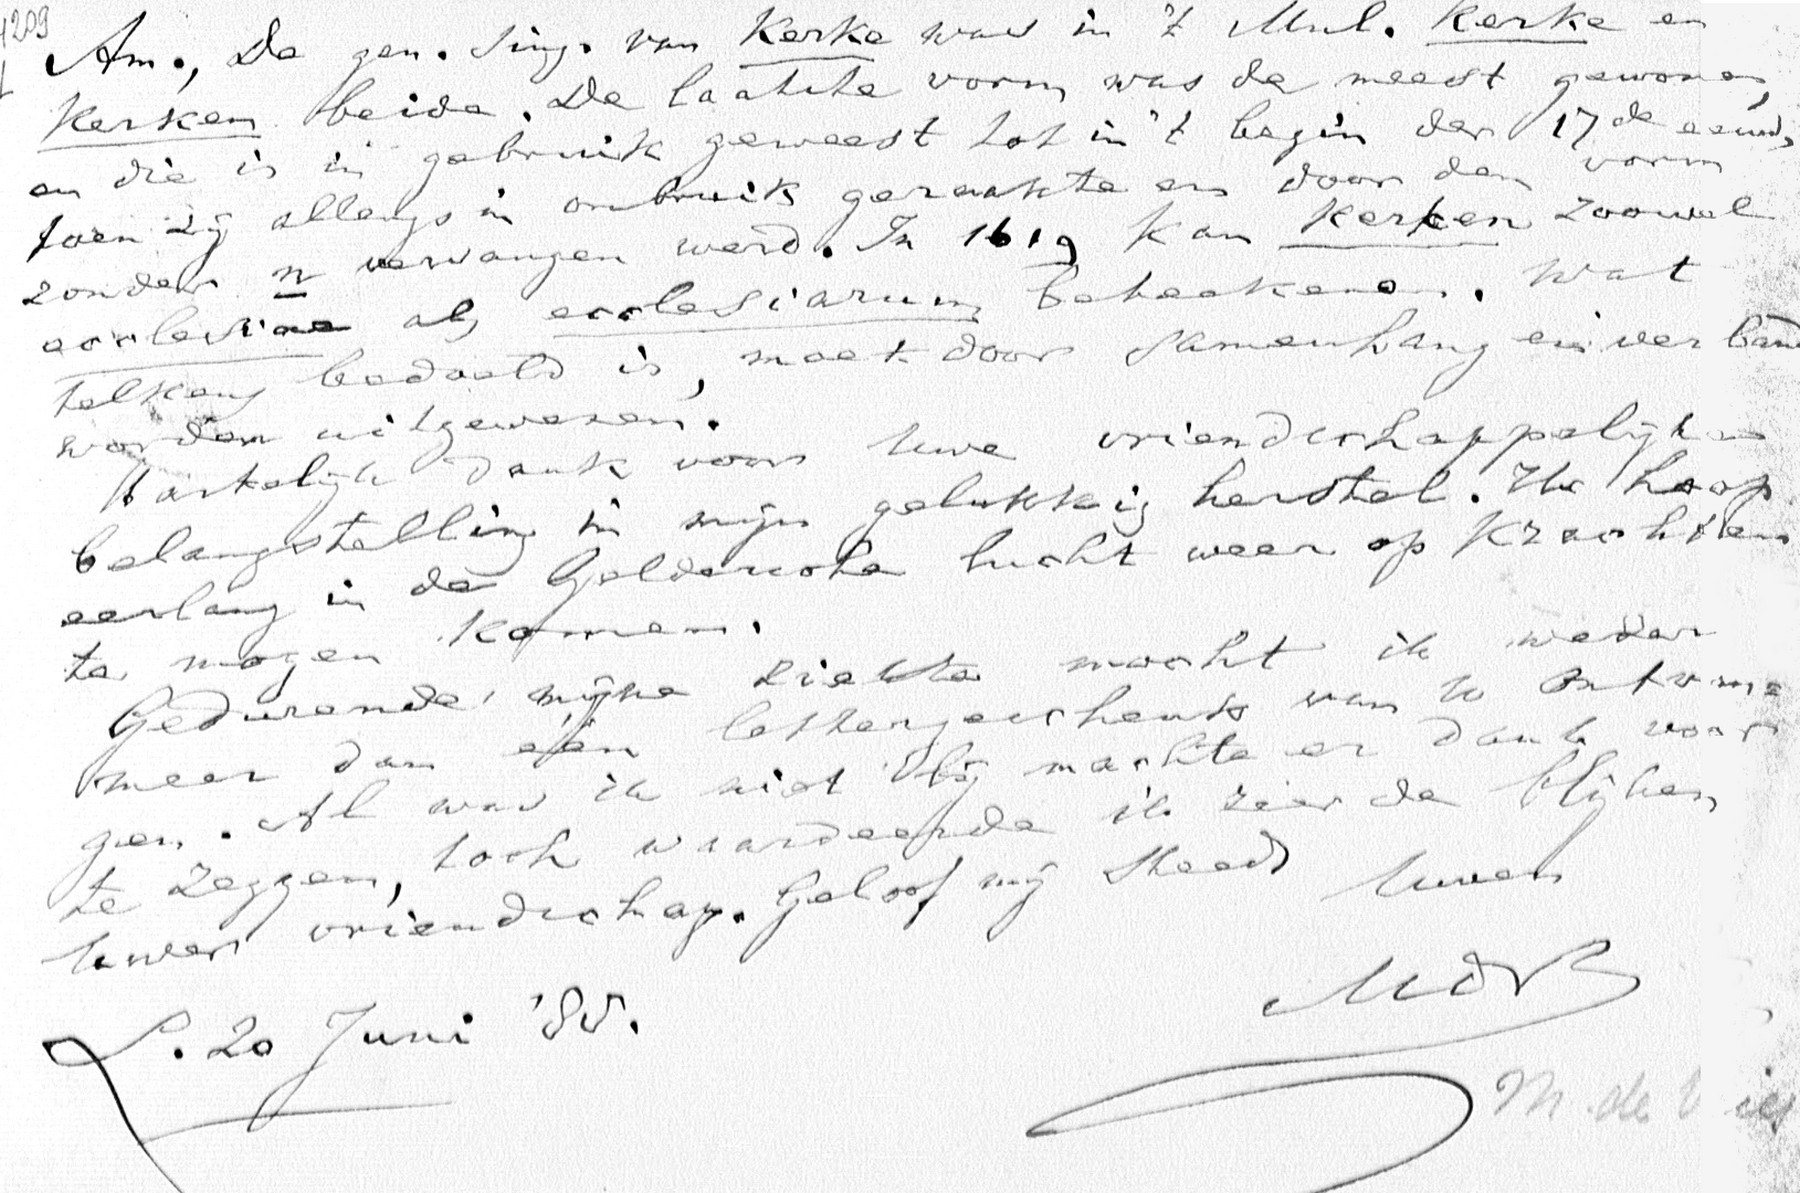 1209
Am., De gen. sing. van Kerke was in 't Mnl. Kerke en
Kerken beide. De laatste vorm was de meest gewone,
en die is in gebruik geweest tot in 't begin der 17de eeuw,
toen zij allengs in onbruik geraakte en door den vorm
zonder n vervangen werd. In 1619 kan Kerken zoowel
ecclesiae als ecclesiarum beteekenen. Wat
telkens bedoeld is, moet door samenhang en verband
worden uitgewezen.
Hartelijk dank voor Uwe vriendschappelijke
belangstelling in mijn gelukkig herstel. Ik hoop
eerlang in de Geldersche lucht weer op Krachten
te mogen komen.
Gedurende mijne ziekte mocht ik weder
meer dan één lettergeschenk van U ontvan=
gen. Al was ik niet bij machte er dank voor
te zeggen, toch waardeerde ik zeer de blijken
Uwer vriendschap. Geloof mij steeds Uwen
MdV
L. 20 Juni '85.
M. de V